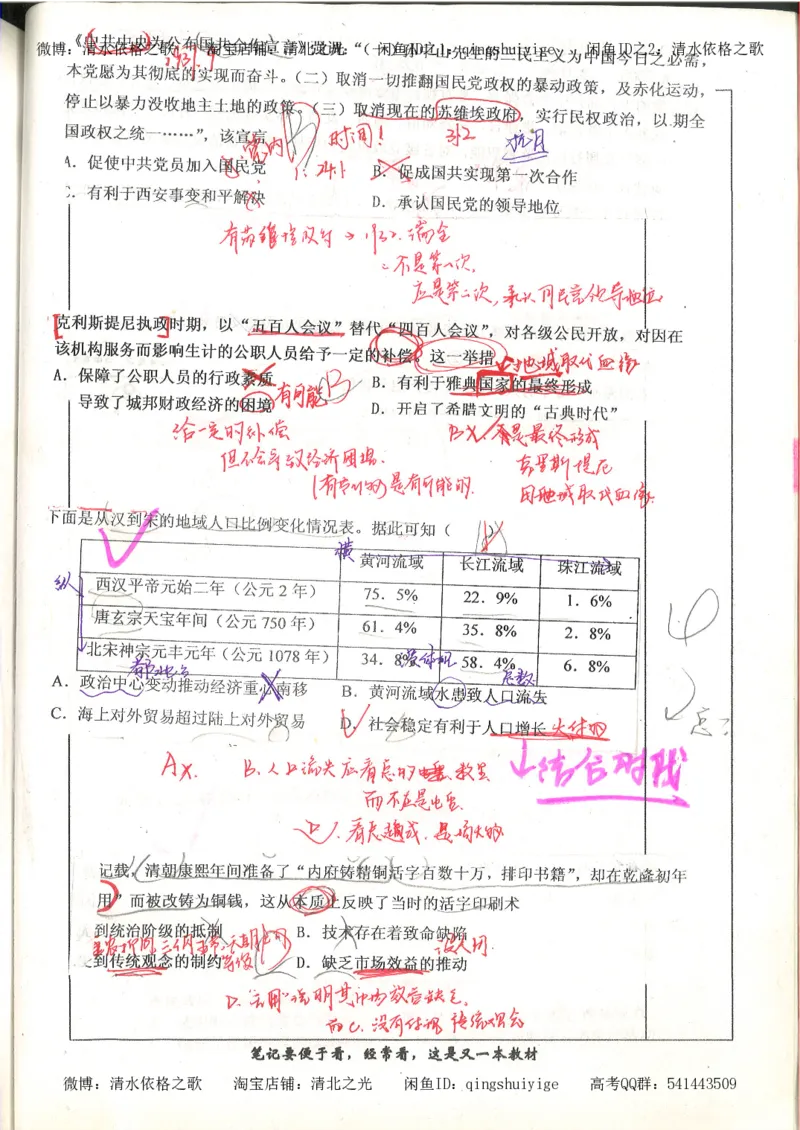 《中共中央为公布国共合作宣言》
微博：清水依格之歌 淘宝店铺：清北之光 闲鱼ID之1：qingshuiyige 闲鱼ID之2：清水依格之歌
“（一）孙中山先生的三民主义为中国今日之必需，
1937.9
本党愿为其彻底的实现而奋斗。（二）取消一切推翻国民党政权的暴动政策，及赤化运动，
停止以暴力没收地主土地的政策。（三）取消现在的苏维埃政府，实行民权政治，以期全
国政权之统一……”，该宣言
时间！
抗日
党内
A．促使中共党员加入国民党
B．促成国共实现第一次合作
C．有利于西安事变和平解决
D．承认国民党的领导地位
不是第一次,
应是第二次,承认国民党领导地位
克利斯提尼执政时期，以“五百人会议”替代“四百人会议”，对各级公民开放，对因在
该机构服务而影响生计的公职人员给予一定的补偿。这一举措
地域取代血缘
A．保障了公职人员的行政素质
B．有利于雅典国家的最终形成
导致了城邦财政经济的困境
有可能
D．开启了希腊文明的“古典时代”
给一定的补偿
但不会导致经济困境.
是有可能的.
B
是最终形成
克里斯提尼
因地域取代血缘
下面是从汉到宋的地域人口比例变化情况表。据此可知（ ）
横
黄河流域 长江流域 珠江流域
纵
西汉平帝元始二年（公元 2 年） 75．5% 22．9% 1．6%
唐玄宗天宝年间（公元 750 年） 61．4% 35．8% 2．8%
北宋神宗元丰元年（公元 1078 年） 34．8% 58．4% 6．8%
总数
A．政治中心变动推动经济重心南移
B．黄河流域水患致人口流失
C．海上对外贸易超过陆上对外贸易
D．社会稳定有利于人口增长
A×.
B.人口流失应看总的数量
而不是比重.
D.看总趋势.是增大的
结合对战
记载，清朝康熙年间准备了“内府铸精铜活字百数十万，排印书籍”，却在乾隆初年
用”而被改铸为铜钱，这从本质上反映了当时的活字印刷术
到统治阶级的抵制
B．技术存在着致命缺陷
没人用.
受到传统观念的制约
D．缺乏市场效益的推动
D.
说明其市场效益缺乏.
而C.没有体现传统观念
笔记要便于看，经常看，这是又一本教材
微博：清水依格之歌 淘宝店铺：清北之光 闲鱼ID：qingshuiyige 高考QQ群：541443509